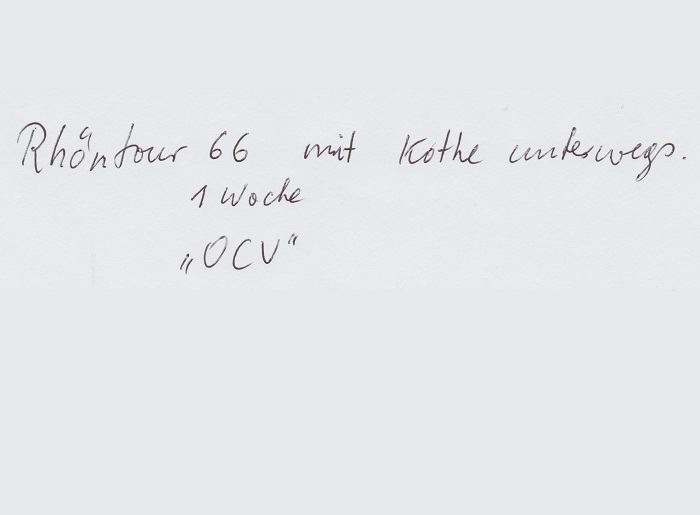 Rhöntour 66 mit Kothe unterwegs.
1 Woche
„OCV“